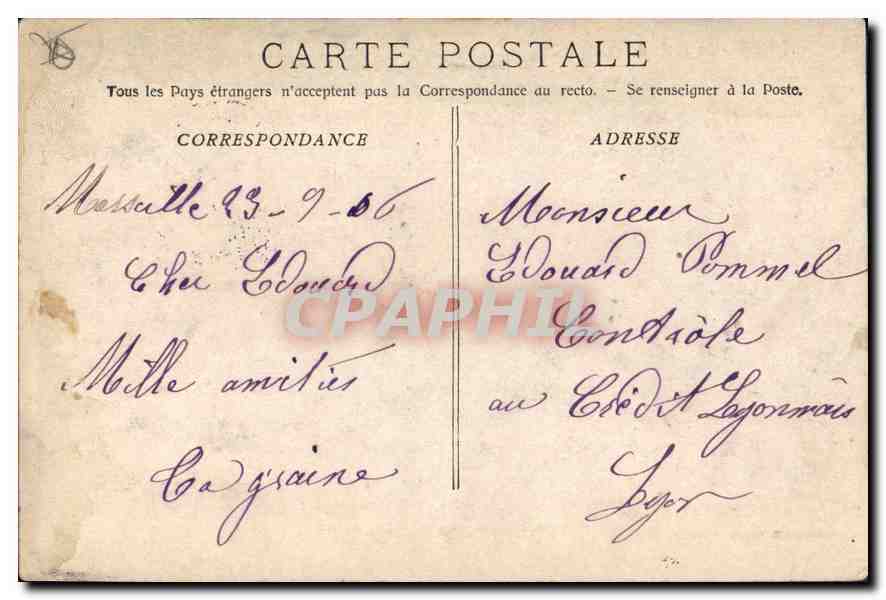 CARTE POSTALE
Tous les Pays étrangers n'acceptent pas la Correspondance au recto. — Se renseigner à la Poste.
CORRESPONDANCE
Marseille 23-9-06
Cher Edouard
Mille amitiés
CPAPHIL
ADRESSE
Monsieur
Edouard Pommel
Contrôle
au Crédit Lyonnais
Lyon